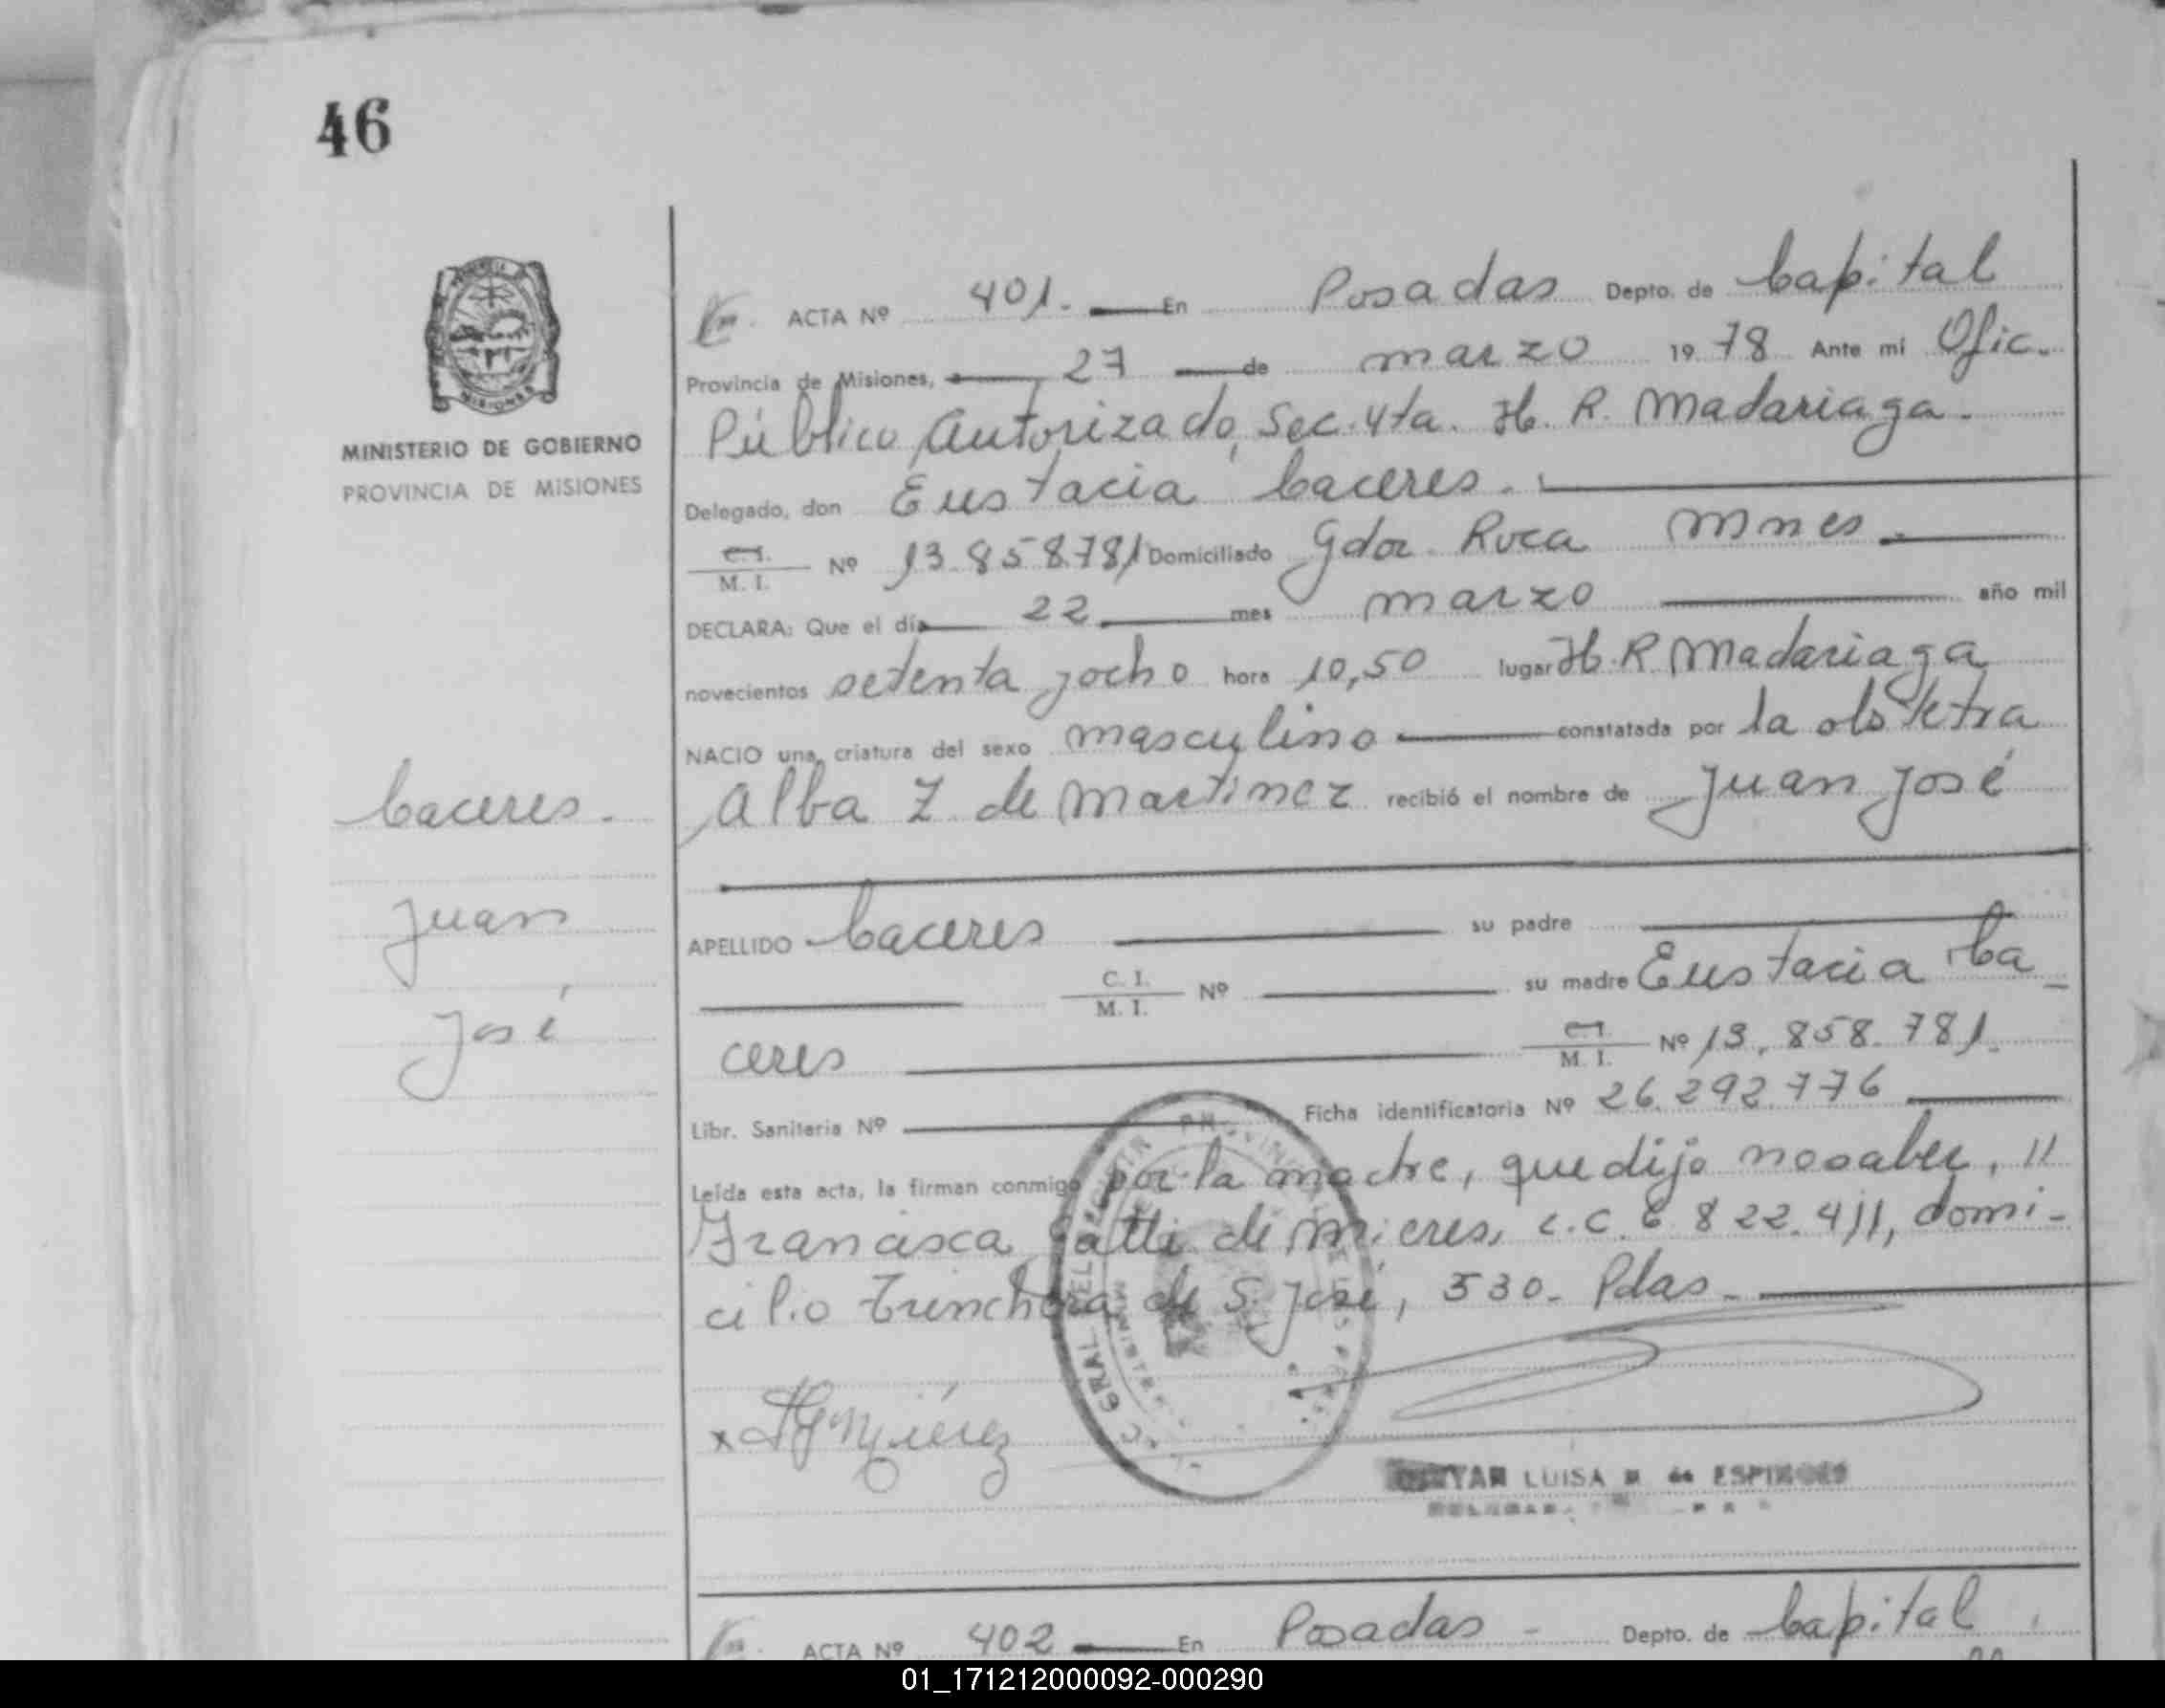 46
MINISTERIO DE GOBIERNO
PROVINCIA DE MISIONES
ACTA Nº 401. En Posadas Depto. de Capital
Provincia de Misiones, 27 de marzo 1978 Ante mi Ofic.
Público Autorizado, Sec. 4ta. H. R. Madariaga.
Delegado, don Eustacia Caceres.
C. I. M. I. Nº 13.858.781 Domiciliado Gdor. Roca Mnes
DECLARA: Que el día 22 mes marzo año mil
novecientos setenta y ocho hora 10,50 lugar H. R. Madariaga
NACIO una criatura del sexo masculino constatada por la obstetra
Caceres.
Alba Z de Martinez recibió el nombre de Juan José
Juan
APELLIDO Caceres su padre
C. I. M. I. Nº su madre Eustacia Ca
José
ceres C. I. M. I. Nº 13.858.781.
Libr. Sanitaria Nº Ficha identificatoria Nº 26.292.776
Leída esta acta, la firman conmigo por la madre, que dijo no saber, "
Francisca Gatti de Mieres, L.C. 6 822.411, domi-
cilio Trinchera de S. José, 530. Pdas.
LUISA M de ESPINOSA
ACTA Nº 402 En Posadas - Depto. de Capital
01_171212000092-000290